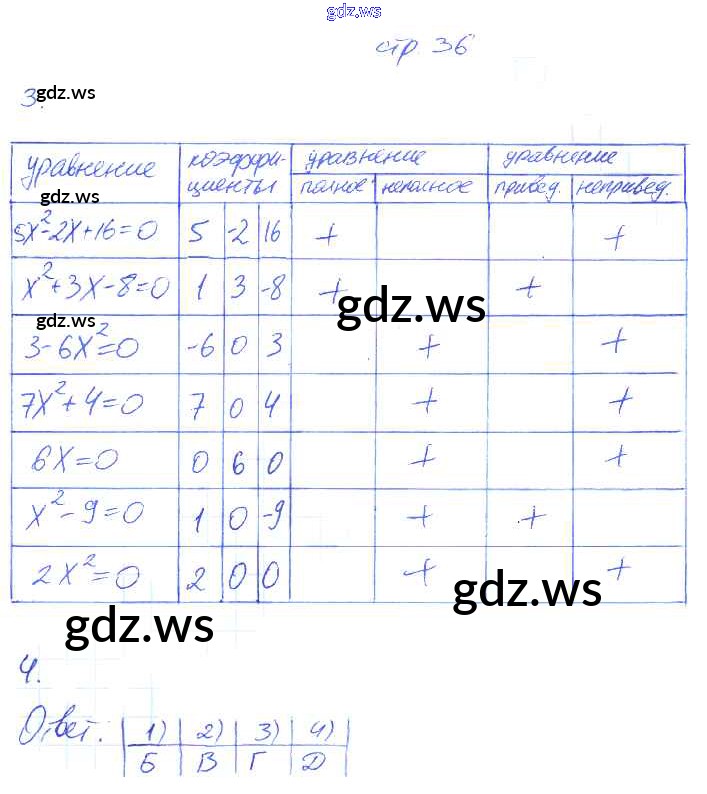 gdz.ws
стр 36
3.
gdz.ws
уравнение коэффи- уравнение уравнение
циенты полное неполное привед. непривед.
gdz.ws
5x²-2x+16=0 5 -2 16 + +
x²+3x-8=0 1 3 -8 + +
gdz.ws
gdz.ws
3-6x²=0 -6 0 3 + +
7x²+4=0 7 0 4 + +
6x=0 0 6 0 + +
x²-9=0 1 0 -9 + +
2x²=0 2 0 0 + +
gdz.ws
gdz.ws
4.
Ответ: 1) 2) 3) 4)
Б В Г Д